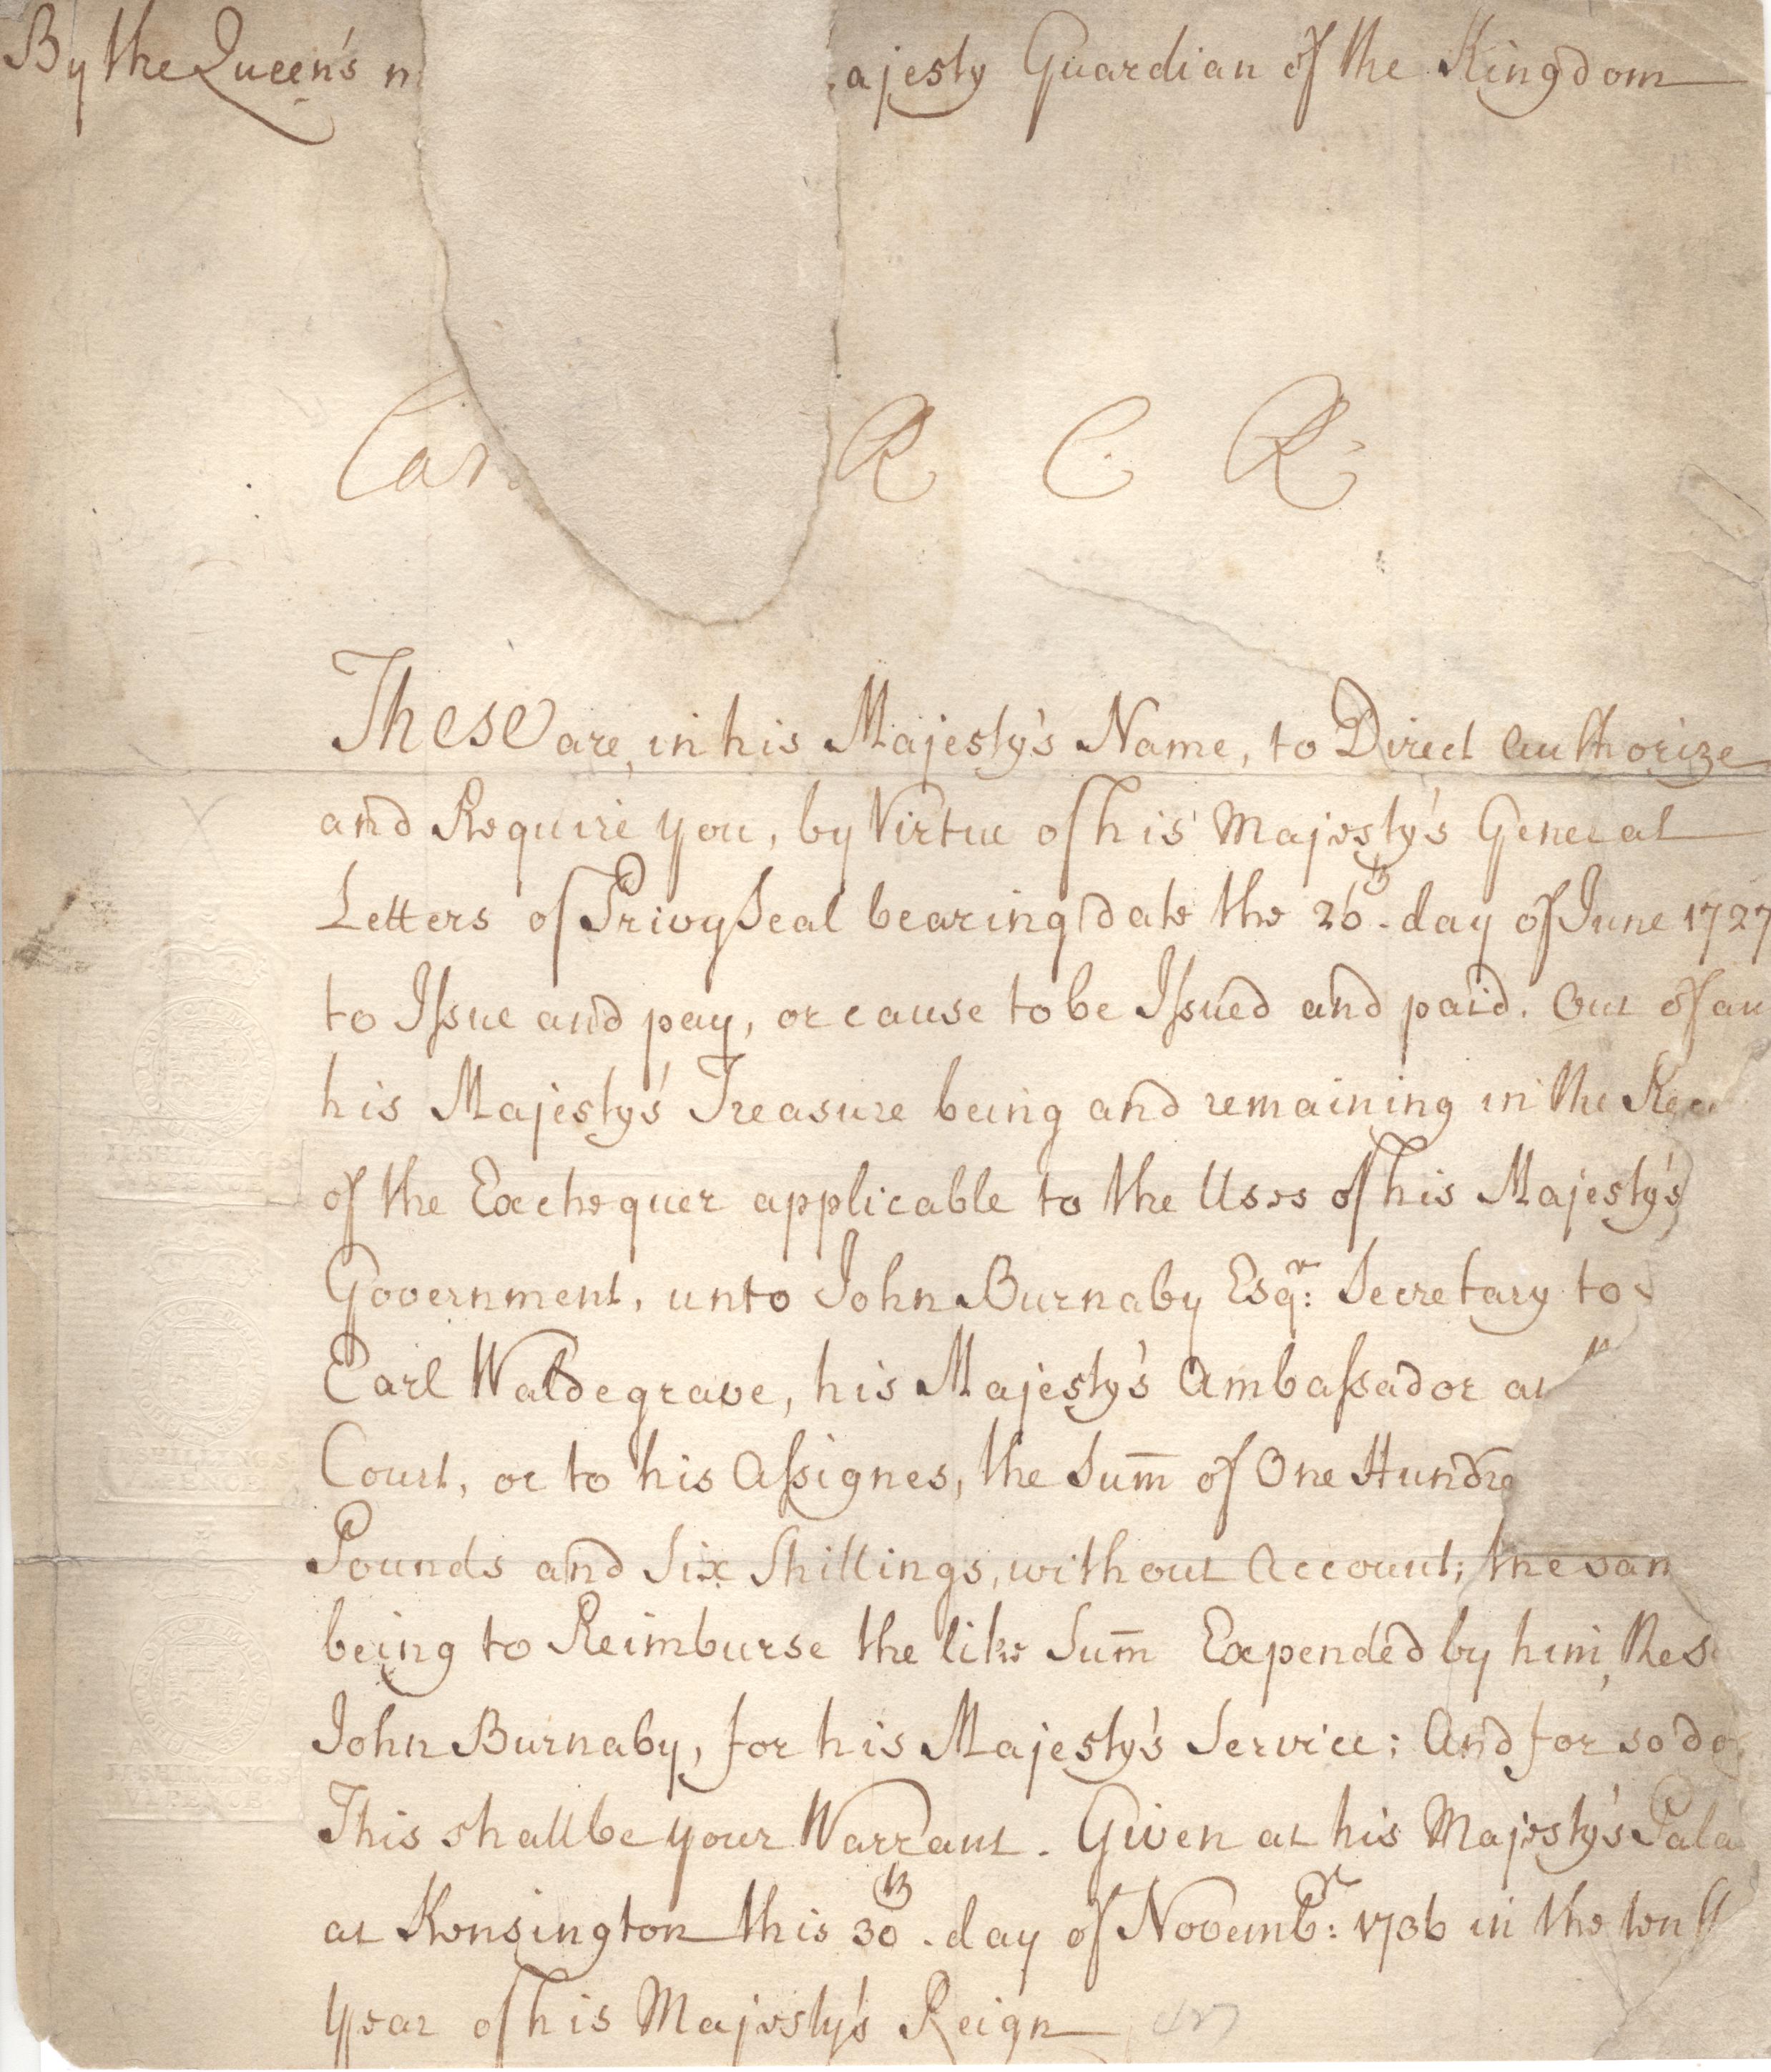 By the Queen's ajesty Guardian of the Kingdom
Car R C R
These are, in his Majesty's Name, to Direct Authorize
and Require you, by Virtue of his Majesty's General
Letters of Privy Seal bearing date the 26th. day of June 1727
to Issue and pay, or cause to be Issued and paid. Out of
his Majesty's Treasure being and remaining in the
of the Exchequer applicable to the Uses of his Majesty's
Government, unto John Burnaby Esqr: Secretary to
Earl Waldegrave, his Majesty's Ambassador at
Court, or to his Assignes, the Sum̄ of One Hundre
Pounds and Six Shillings, without Account; the sam
being to Reimburse the like Sum̄ Expended by him,
John Burnaby, for his Majesty's Service; And for so do
This shall be your Warrant. Given at his Majesty's Pala
at Kensington this 30th. day of Novembr: 1736 in the tenth
Year of his Majesty's Reign
II SHILLINGS
VI PENCE
II SHILLINGS
PENCE
II SHILLINGS
VI PENCE